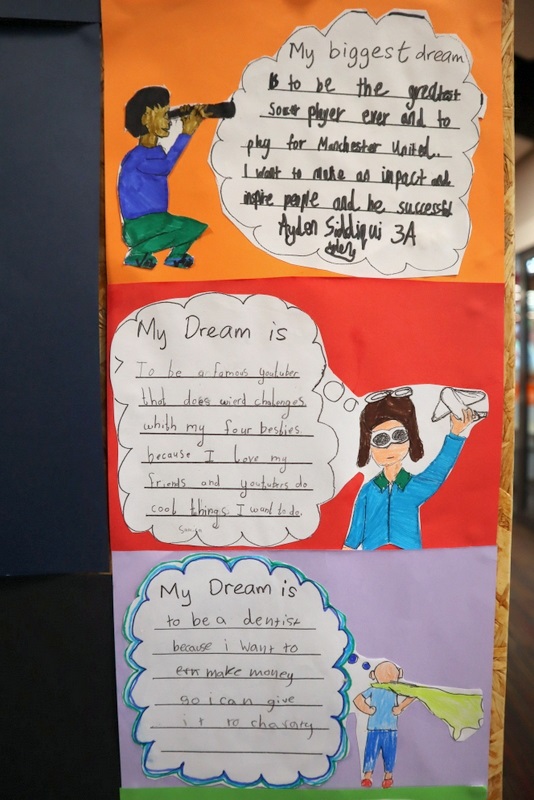 My biggest dream
is to be the greatest
Soxer player ever and to
play for Manchester United.
I want to make an impact and
inspire people and be successful
Ayden Siddiqui 3A
My Dream is
To be a famous youtuber
that does wierd challenges
whith my four besties.
because I love my
friends and youtubers do
cool things I want to do.
My Dream is
to be a dentist
because i want to
make money
so i can give
it to charaty